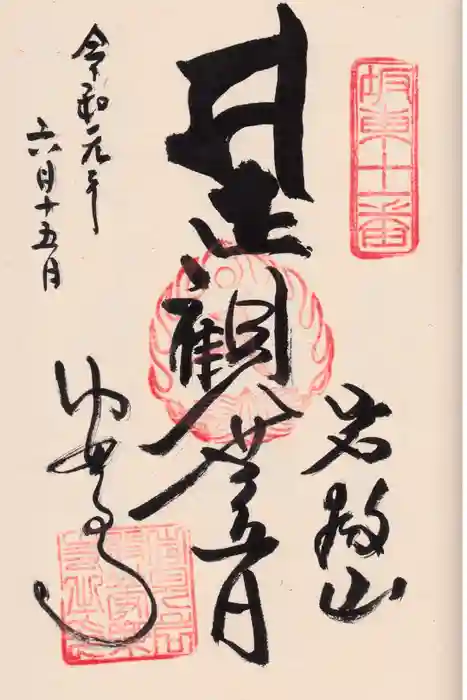 坂東十一番
岩殿山
聖観世音
令和元年
六月十五日